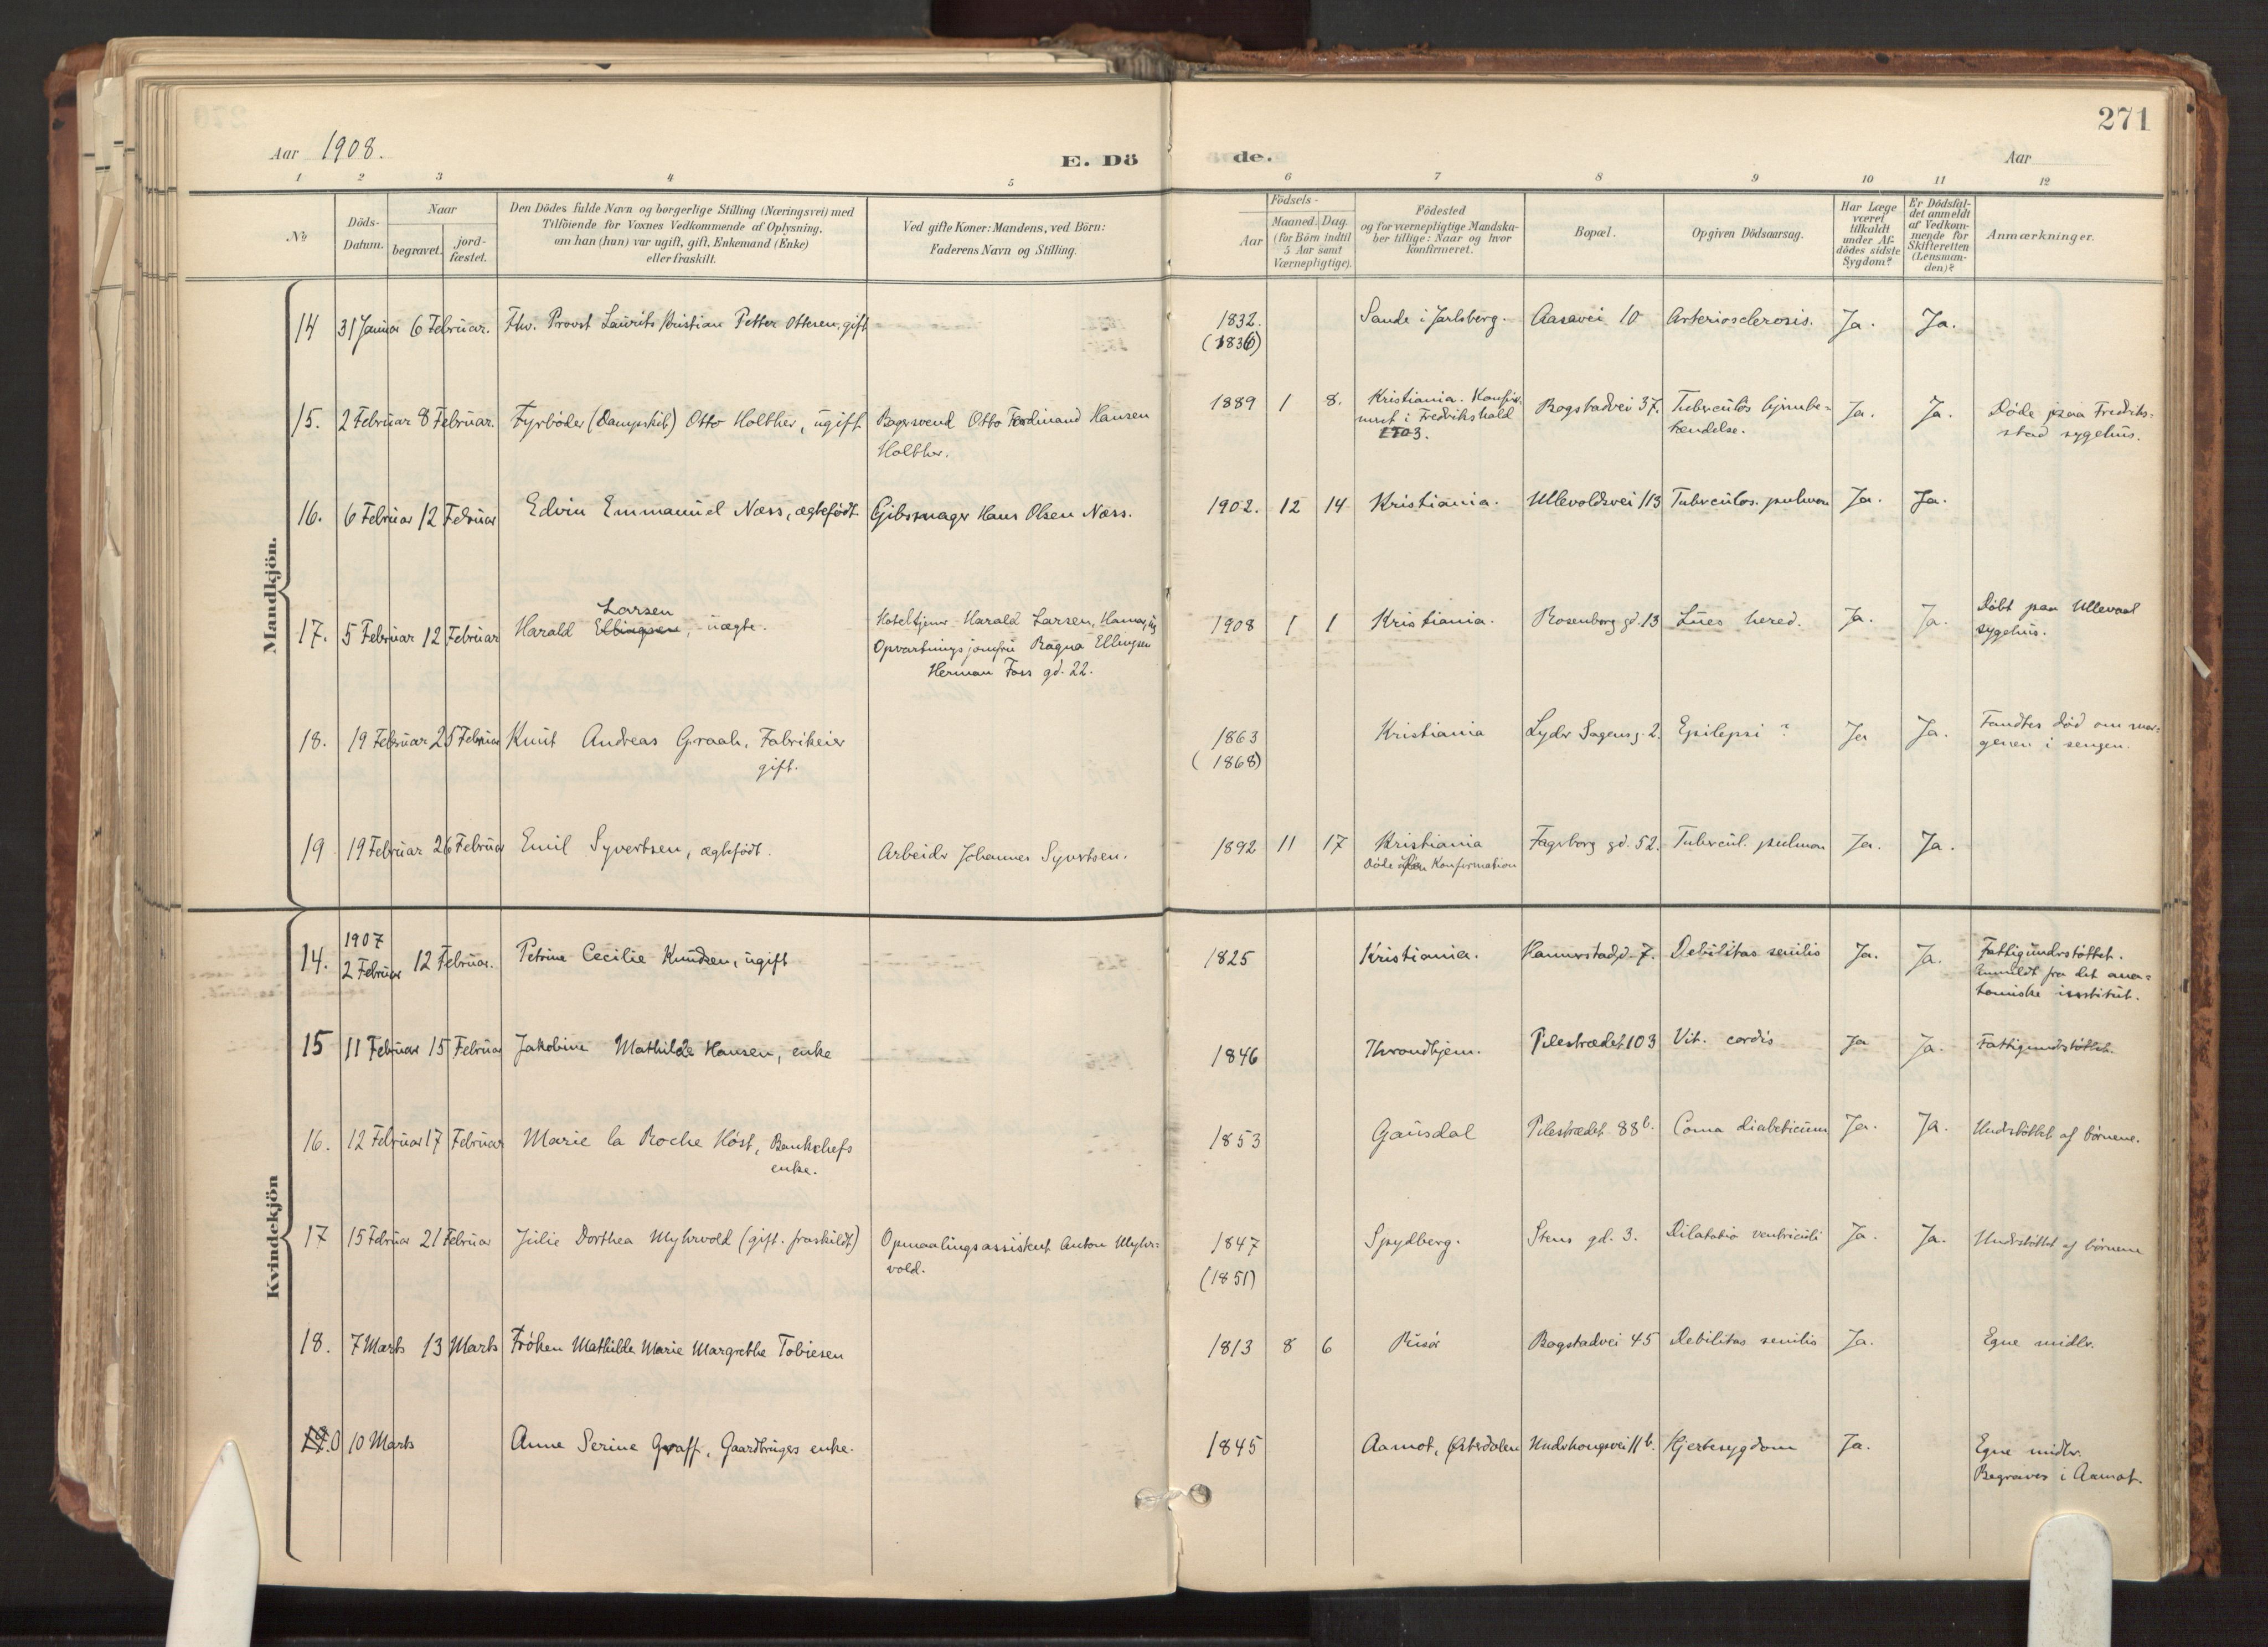 271
Aar 1908.
E. Dö
de.
Aar
1 2 3 4 5 6 7 8 9 10 11 12
№
Döds-
Datum.
Naar
begravet.
jord-
fæstet.
Den Dödes fulde Navn og borgerlige Stilling (Næringsvei) med
Tilföiende for Voxnes Vedkommende af Oplysning,
om han (hun) var ugift, gift, Enkemand (Enke)
eller fraskilt.
Ved gifte Koner: Mandens, ved Börn:
Faderens Navn og Stilling.
Födsels-
Aar
Maaned. Dag.
(for Börn indtil
5 Aar samt
Værnepligtige).
Födested
og for værnepligtige Mandska-
ber tillige: Naar og hvor
konfirmeret.
Bopæl.
Opgiven Dödsaarsag.
Har Læge
været
tilkaldt
under Af-
dödes sidste
Sygdom?
Er Dödsfal-
det anmeldt
af Vedkom-
mende for
Skifteretten
(Lensman-
den)?
Anmærkninger.
Mandkjön.
14 31 Januar 6 Februar. Fhv. Provst Laurits Kristian Petter Ottesen, gift 1832. Sande i Jarlsberg. Aasavei 10 Arteriosclerosis. Ja. Ja.
(1836)
15. 2 Februar 8 Februar. Fyrbøder (Dampskib) Otto Holther, ugift. Bagersvend Otto Ferdinand Hansen 1889 1 8. Kristiania. Konfir- Bogstadvei 37. Tuberculøs hjernebe- Ja. Ja. Døde paa Fredrik-
Holther. meret i Fredrikshald tændelse. stad sygehus.
1903.
16. 6 Februar 12 Februar Edvin Emmanuel Næss, ægtefødt. Gibsmager Hans Olsen Næss. 1902. 12 14 Kristiania. Ullevoldsvei 113 Tuberculos. pulmon Ja. Ja.
Larsen
17. 5 Februar 12 Februar Harald Ellingsen, uægte. Hoteltjener Harald Larsen, Hamar, og 1908 1 1 Kristiania. Rosenborg gd. 13 Lues hered. Ja. Ja. Døbt paa Ullevaal
Opvartningsjomfru Ragna Ellingsen sygehus.
Herman Foss gd. 22.
18. 19 Februar 25 Februar Knut Andreas Graah, Fabrikeier 1863 Kristiania Lyder Sagens g. 2. Epilepsi? Ja Ja. Fandtes død om mor-
gift. (1868) genen i sengen.
19 19 Februar 26 Februar Emil Syvertsen, ægtefødt. Arbeider Johannes Syvertsen. 1892 11 17 Kristiania Fagerborg gd. 52. Tubercul. pulmon Ja. Ja.
Døde uden Konfirmation
Kvindekjön
1907
14. 2 Februar 12 Februar. Petrine Cecilie Knudsen, ugift 1825 Kristiania. Hammerstad g. 7. Debilitas senilis Ja. Ja. Fattigunderstøttet.
Anmeldt fra det ana-
tomiske institut.
15 11 Februar 15 Februar Jakobine Mathilde Hansen, enke 1846 Throndhjem. Pilestrædet 103 Vit. cordis Ja Ja. Fattigunderstøttet.
16. 12 Februar 17 Februar Marie la Roche Høst, Bankchefs 1853 Gausdal Pilestrædet 88b. Coma diabeticum Ja. Ja. Understøttet af børnene.
enke.
17 15 Februar 21 Februar Julie Dorthea Myhrvold (gift. fraskildt) Opmaalingsassistent Anton Myhr- 1847 Spydberg. Stens gd. 3. Dilatatio ventriculi Ja. Ja. Understøttet af børnene
vold. (1851)
18. 7 Marts 13 Marts Frøken Mathilde Marie Margrethe Tobiesen 1813 8 6 Risør Bogstadvei 45 Debilitas senilis Ja. Egne midler.
19. 0 10 Marts Anne Serine Graff, Gaardbrugers enke. 1845 Aamot, Østerdalen Underhaugsvei 11b. Hjertesygdom Ja. Egne midler.
Begraves i Aamot.